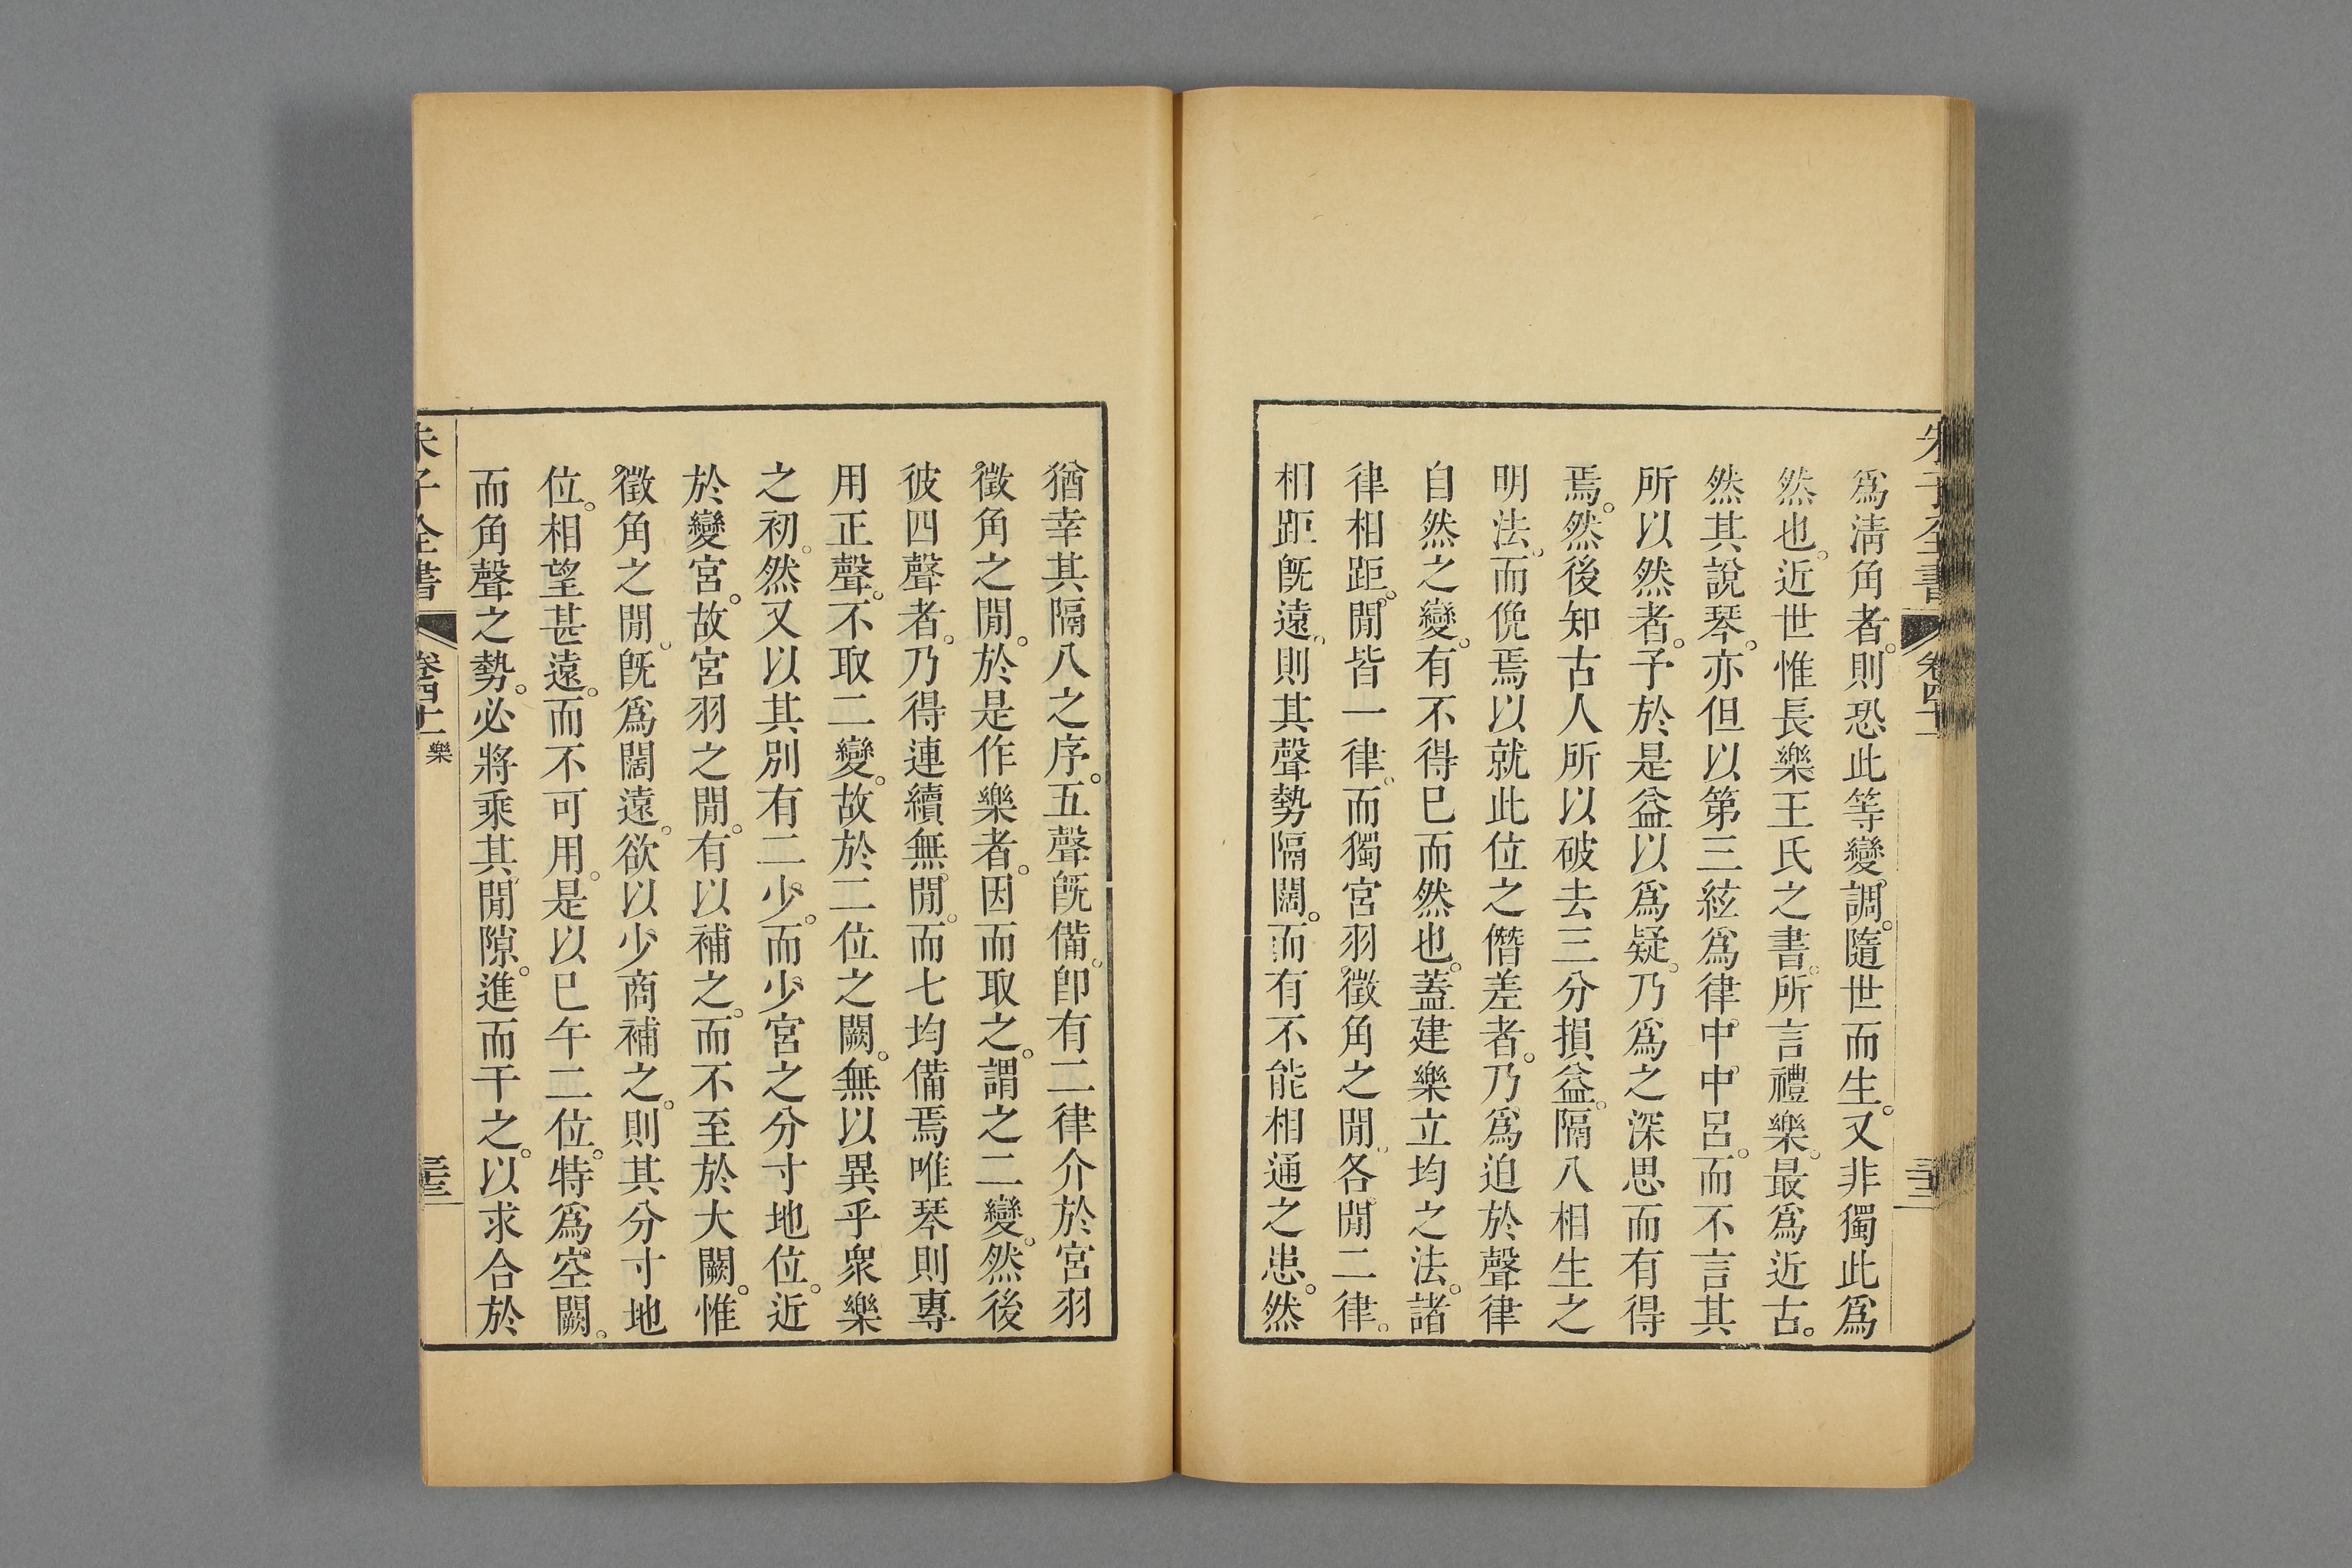 為淸角者。則恐此等變調。隨世而生。又非獨此為
然也。近世惟長樂王氏之書。所言禮樂。最為近古。
然其說琴。亦但以第三絃為律中中呂。而不言其
所以然者。予於是益以為疑。乃為之深思而有得
焉。然後知古人所以破去三分損益。隔八相生之
明法。而俛焉以就此位之僭差者。乃為迫於聲律
自然之變。有不得已而然也。蓋建樂立均之法。諸
律相距。閒皆一律。而獨宮羽徵角之閒。各閒二律。
相距旣遠。則其聲勢隔闊。而有不能相通之患。然
猶幸其隔八之序。五聲旣備。卽有二律介於宮羽
徵角之閒。於是作樂者。因而取之。謂之二變。然後
彼四聲者。乃得連續無閒。而七均備焉唯琴則專
用正聲。不取二變。故於二位之闕。無以異乎衆樂
之初。然又以其別有二少。而少宮之分寸地位。近
於變宮。故宮羽之閒。有以補之。而不至於大闕。惟
徵角之閒。旣為闊遠。欲以少商補之。則其分寸地
位。相望甚遠。而不可用。是以巳午二位。特為空闕。
而角聲之勢。必將乘其閒隙。進而干之。以求合於
朱子全書 卷四十一 樂